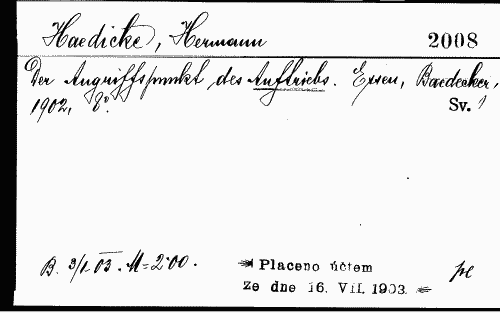 Haedicke, Hermann 2008
Der Angriffspunkt des Auftriebs. Essen, Baedecker,
1902, 8°. Sv. 1
B. 3/I 03. M = 2·00.
Placeno účtem
ze dne 16. VII. 1903.